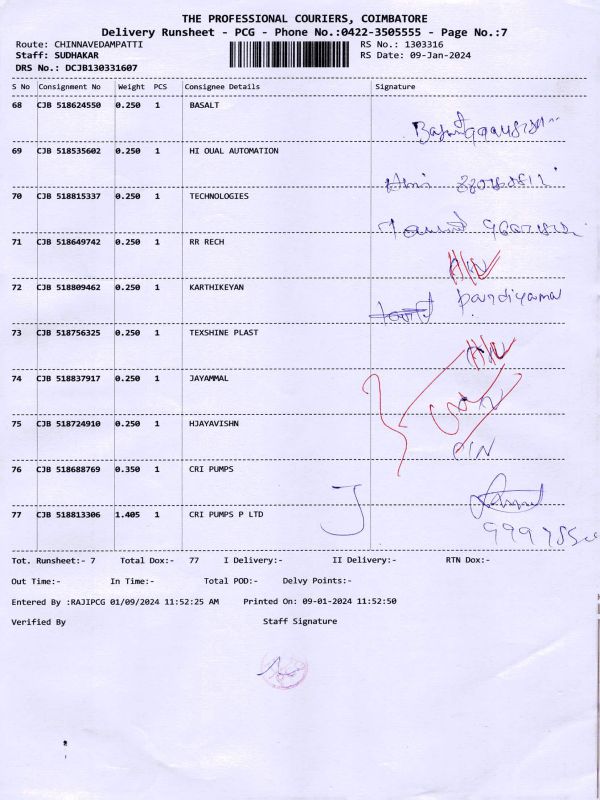 THE PROFESSIONAL COURIERS, COIMBATORE
Delivery Runsheet - PCG - Phone No.:0422-3505555 - Page No.:7
Route: CHINNAVEDAMPATTI RS No.: 1303316
Staff: SUDHAKAR RS Date: 09-Jan-2024
DRS No.: DCJB130331607
S No Consignment No Weight PCS Consignee Details Signature
68 CJB 518624550 0.250 1 BASALT
69 CJB 518535602 0.250 1 HI OUAL AUTOMATION
70 CJB 518815337 0.250 1 TECHNOLOGIES
71 CJB 518649742 0.250 1 RR RECH
72 CJB 518809462 0.250 1 KARTHIKEYAN
73 CJB 518756325 0.250 1 TEXSHINE PLAST
74 CJB 518837917 0.250 1 JAYAMMAL
75 CJB 518724910 0.250 1 HJAYAVISHN
76 CJB 518688769 0.350 1 CRI PUMPS
77 CJB 518813306 1.405 1 CRI PUMPS P LTD
Tot. Runsheet:- 7 Total Dox:- 77 I Delivery:- II Delivery:- RTN Dox:-
Out Time:- In Time:- Total POD:- Delvy Points:-
Entered By :RAJIPCG 01/09/2024 11:52:25 AM Printed On: 09-01-2024 11:52:50
Verified By Staff Signature